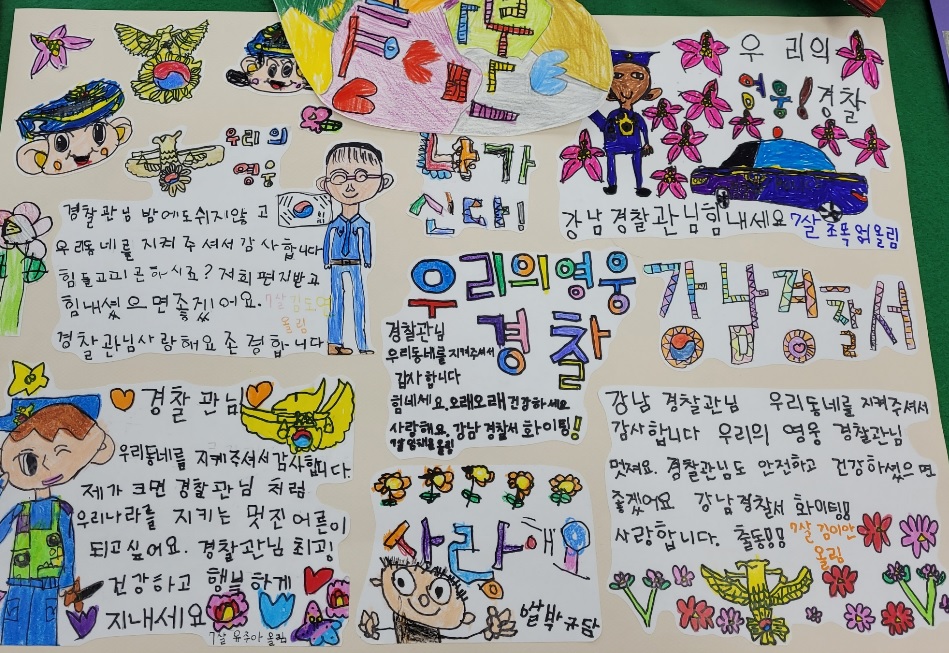 우리의
영웅
경찰관님 밤에도쉬지않고
우리동네를 지켜주셔서감사합니다
힘들고피곤하시죠? 저희편지받고
힘내셨으면좋겠어요. 7살
올림
경찰관님사랑해요존경합니다
누가
우리의
영웅! 경찰
강남경찰관님힘내세요 7살 조목 올림
우리의영웅
경찰
경찰관님
우리동네를지켜주셔서
감사합니다
힘네세요.오래오래건강하세요
사랑해요.강남경찰서 화이팅!
7살 올림
강남경찰서
강남 경찰관님 우리동네를지켜주셔서
감사합니다 우리의 영웅 경찰관님
멋져요. 경찰관님도 안전하고 건강하셨으면
좋겠어요 강남경찰서 화이팅!!
사랑합니다. 출동!!! 7살 김이안
올림
경찰관님
우리동네를 지켜주셔서감사합니다.
제가 크면 경찰관님 처럼
우리나라를 지키는 멋진어른이
되고싶어요. 경찰관님 최고!
건강하고 행복하게
지내세요
7살 유주아 올림
사랑해요
박규담